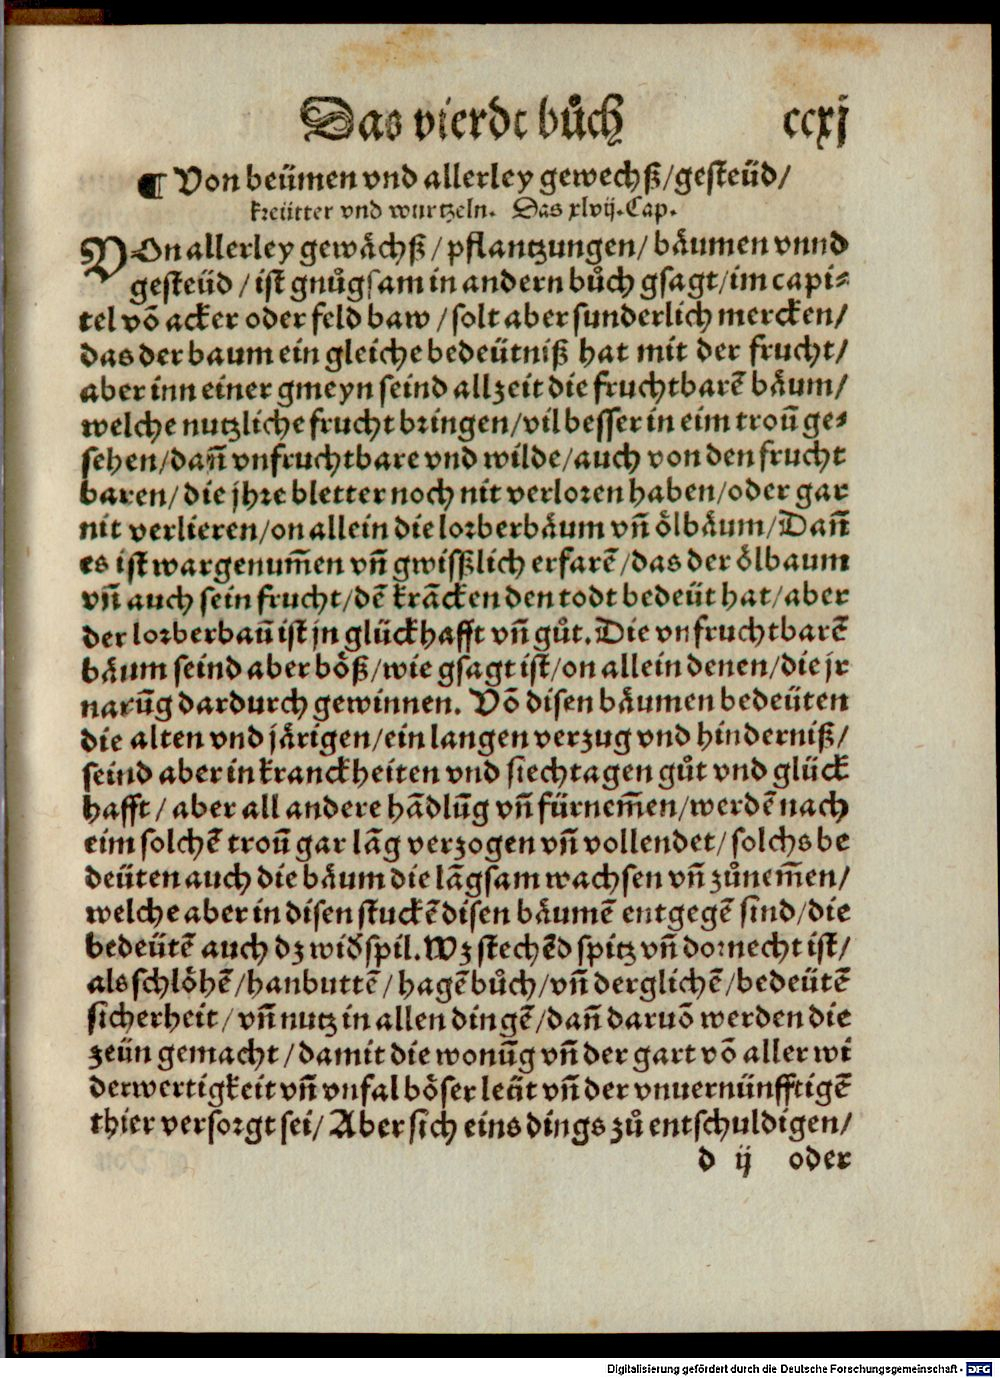 Das vierdt bůch ccxj
¶ Von beümen vnd allerley gewechß/gesteüd/
kreütter vnd wurtzeln. Das xlvij. Cap.
VOn allerley gewächß/pflantzungen/bäumen vnnd
gesteüd/ist gnůgsam in andern bůch gsagt/im capi⸗
tel võ acker oder feld baw/solt aber sunderlich mercken/
das der baum ein gleiche bedeütniß hat mit der frucht/
aber inn einer gmeyn seind allzeit die fruchtbarē bäum/
welche nutzliche frucht bringen/vil besser in eim troum̄ ge⸗
sehen/dañ vnfruchtbare vnd wilde/auch von den frucht
baren/die jhre bletter noch nit verloren haben/oder gar
nit verlieren/on allein die lorberbäum vñ ölbäum/Dañ
es ist wargenum̄en vñ gwißlich erfarē/das der ölbaum
vñ auch sein frucht/dē krācken den todt bedeüt hat/aber
der lorberbaū ist jn glückhafft vñ gůt. Die vnfruchtbarē
bäum seind aber böß/wie gsagt ist/on allein denen/die jr
narūg dardurch gewinnen. Võ disen bäumen bedeüten
die alten vnd järigen/ein langen verzug vnd hinderniß/
seind aber in kranckheiten vnd siechtagen gůt vnd glück
hafft/aber all andere hādlūg vñ fürnem̄en/werdē nach
eim solchē troum̄ gar lāg verzogen vñ vollendet/solchs be
deüten auch die bäum die lāgsam wachsen vñ zůnem̄en/
welche aber in disen stuckē disen bäumē entgegē sind/die
bedeütē auch dz widspil. Wz stechēd spitz vñ dornecht ist/
als schlöhē/hanbuttē/hagēbůch/vñ derglichē/bedeütē
sicherheit/vñ nutz in allen dingē/dañ daruō werden die
zeün gemacht/damit die wonūg vñ der gart võ aller wi
derwertigkeit vñ vnfal böser leüt vñ der vnuernünfftigē
thier versorgt sei/Aber sich eins dings zů entschuldigen/
d ij oder
Digitalisierung gefördert durch die Deutsche Forschungsgemeinschaft - DFG